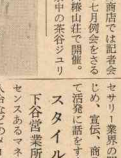 商店では記者会
七月例会をさる
椿山荘で開催。
中の茶谷ジユリ
セサリー業界の
じめ、宣伝、商
て活発に話をす
スタイル
下谷営業所
センスあるマネ